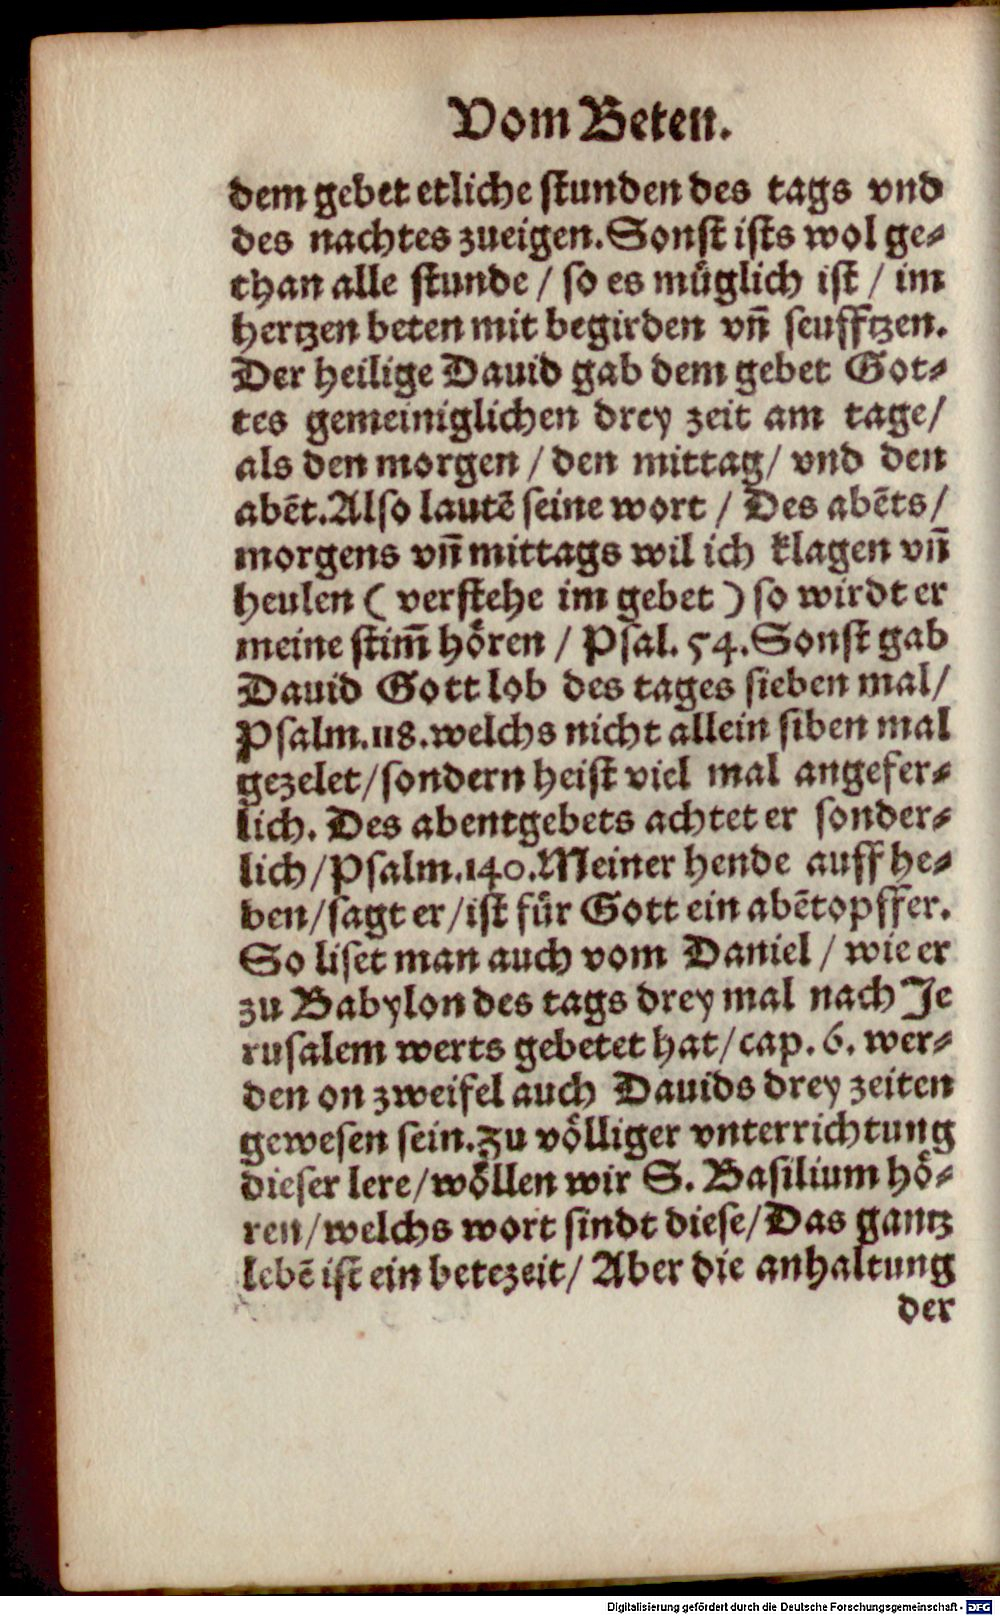 Vom Beten.
dem gebet etliche stunden des tags vnd
des nachtes zueigen. Sonst ists wol ge-
than alle stunde / so es müglich ist / im
hertzen beten mit begirden vñ seufftzen.
Der heilige Dauid gab dem gebet Got-
tes gemeiniglichen drey zeit am tage/
als den morgen / den mittag/ vnd den
abẽt. Also lautẽ seine wort / Des abẽts/
morgens vñ mittags wil ich klagen vñ
heulen ( verstehe im gebet ) so wirdt er
meine stim̃ hören / Psal. 54. Sonst gab
Dauid Gott lob des tages sieben mal/
Psalm. 118. welchs nicht allein siben mal
gezelet/sondern heist viel mal angefer-
lich. Des abentgebets achtet er sonder-
lich/Psalm. 140. Meiner hende auff he-
ben/sagt er/ist für Gott ein abẽtopffer.
So liset man auch vom Daniel / wie er
zu Babylon des tags drey mal nach Je
rusalem werts gebetet hat/cap. 6. wer-
den on zweifel auch Dauids drey zeiten
gewesen sein. Zu völliger vnterrichtung
dieser lere/wöllen wir S. Basilium hö-
ren/welchs wort sindt diese/Das gantz
lebẽ ist ein betezeit/ Aber die anhaltung
der
Digitalisierung gefördert durch die Deutsche Forschungsgemeinschaft - DFG